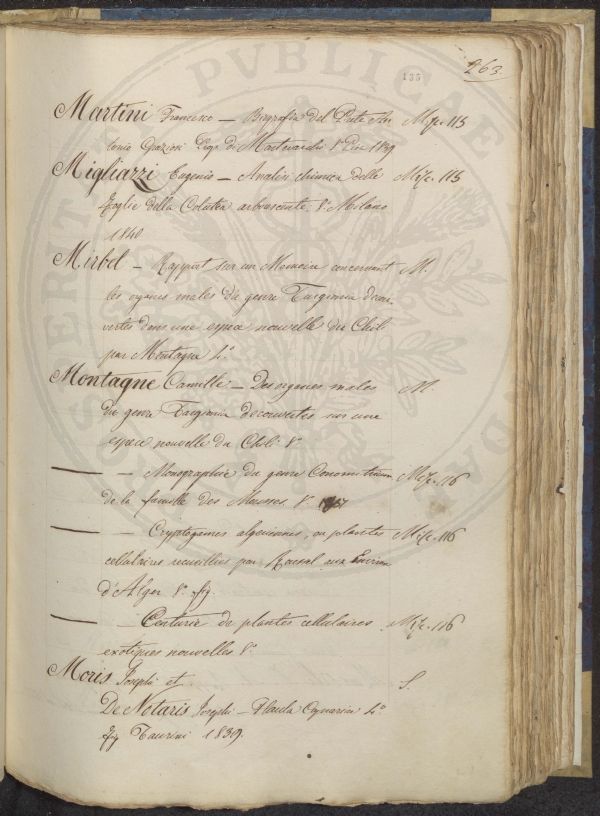 PVBLICAE
135
263.
Martini Francesco — Biografia del Prete An Misc. 115
tonio Graziosi 8° Dec 1839
Migliazzi Eugenio — Analisi chimica delle Misc. 115
foglie della Colutea arborescente. 8° Milano
1840
Mirbel — Rapport sur un Memoire concernant M.
les organes males du genre Targionia decou
vertes dans une espece nouvelle du Chili
par Montagne 4°
Montagne Camille — Des organes males M
du genre Targionia decouvertes sur une
espece nouvelle du Chili 8°
— — Monographie du genre Conomitrium Misc. 116
de la famille des Mousses 8° 1837
— — Cryptogames algeriennes, ou plantes Misc. 116
cellulaires recueillies par Roussel aux Environs
d'Alger 8° fig.
— — Centurie de plantes cellulaires Misc. 116
exotiques nouvelles 8°
Moris Joseph et S.
De Notaris Joseph — Florula Caprariae 4°
fig Taurini 1839.